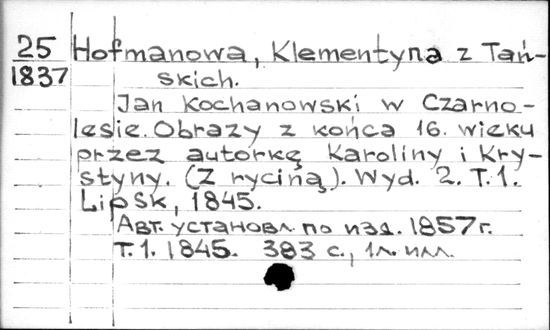 25
1837
Hofmanowa, Klementyna z Tań-
skich.
Jan Kochanowski w Czarno-
lesie. Obrazy z końca 16. wieku
przez autorkę Karoliny i Kry-
styny. (Z ryciną). Wyd. 2. T. 1.
Lipsk, 1845.
Авт. установл. по изд. 1857 г.
Т. 1. 1845. 383 с., 1 л. илл.